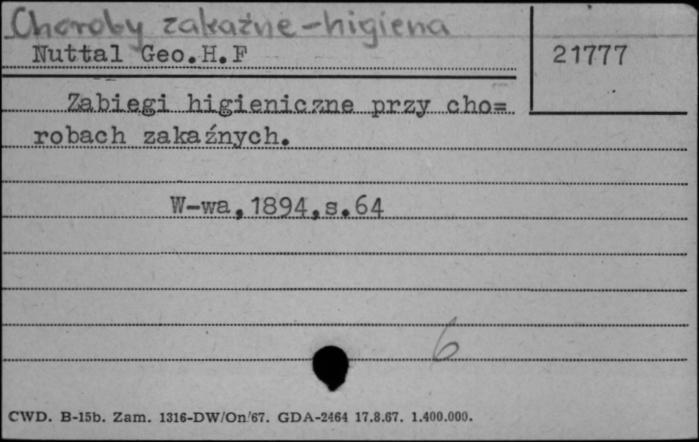 Choroby zakaźne-higiena
Nuttal Geo.H.F
21777
Zabiegi higieniczne przy cho=
robach zakaźnych.
W-wa,1894,s.64
6
CWD. B-15b. Zam. 1316-DW/On/67. GDA-2464 17.8.67. 1.400.000.